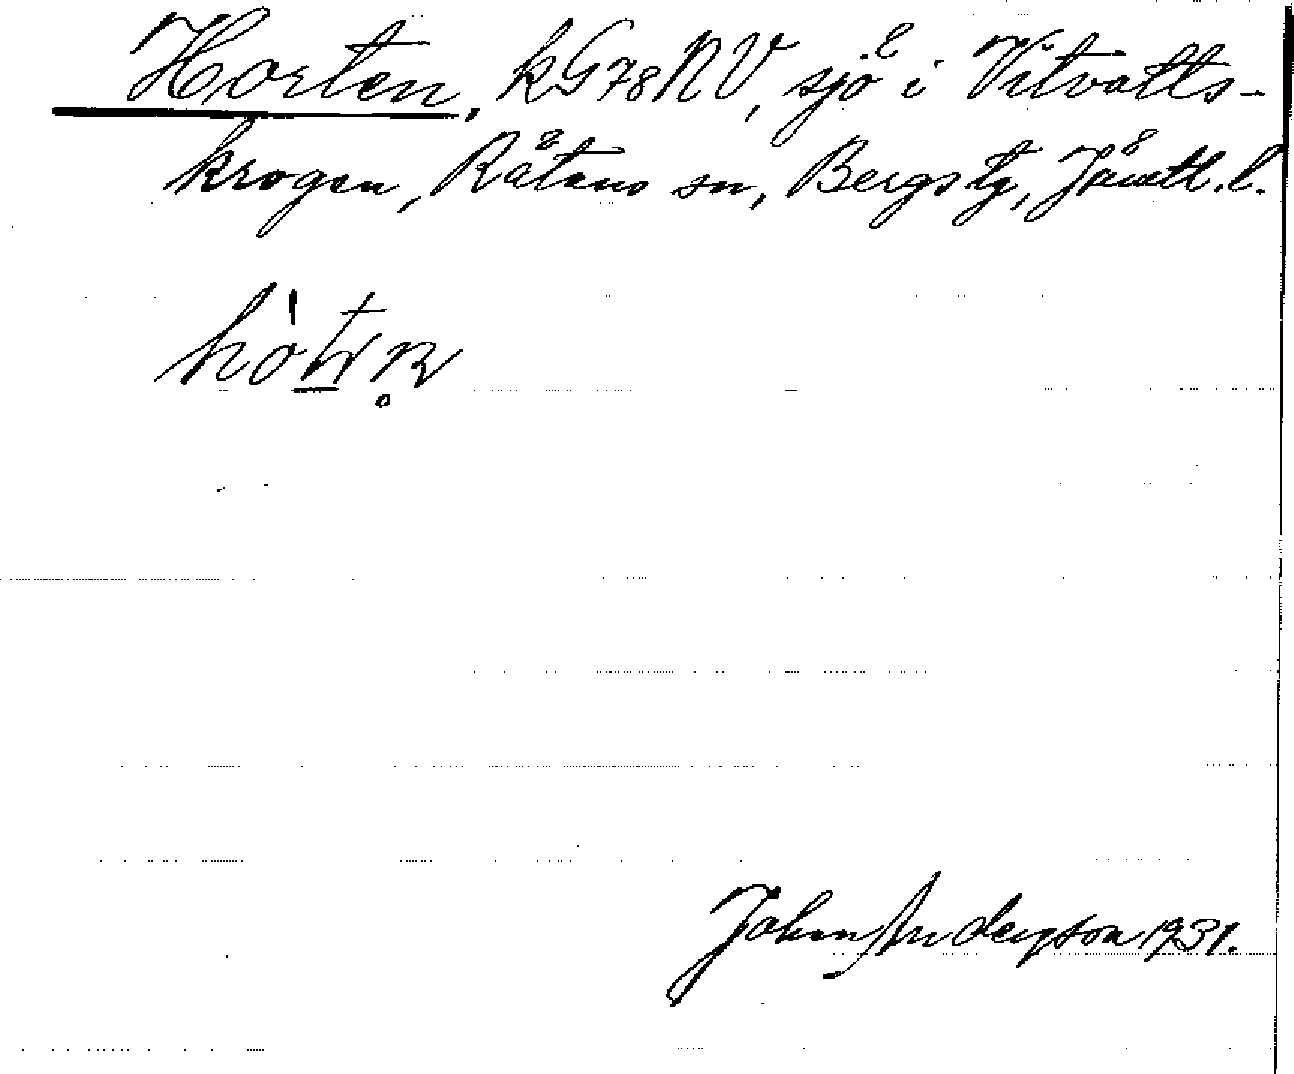 Horten, kG78NV, sjö i Vitvatts-
krogen, Rätans sn, Bergs tg, Jämtl. l.
John Anderson 1931.